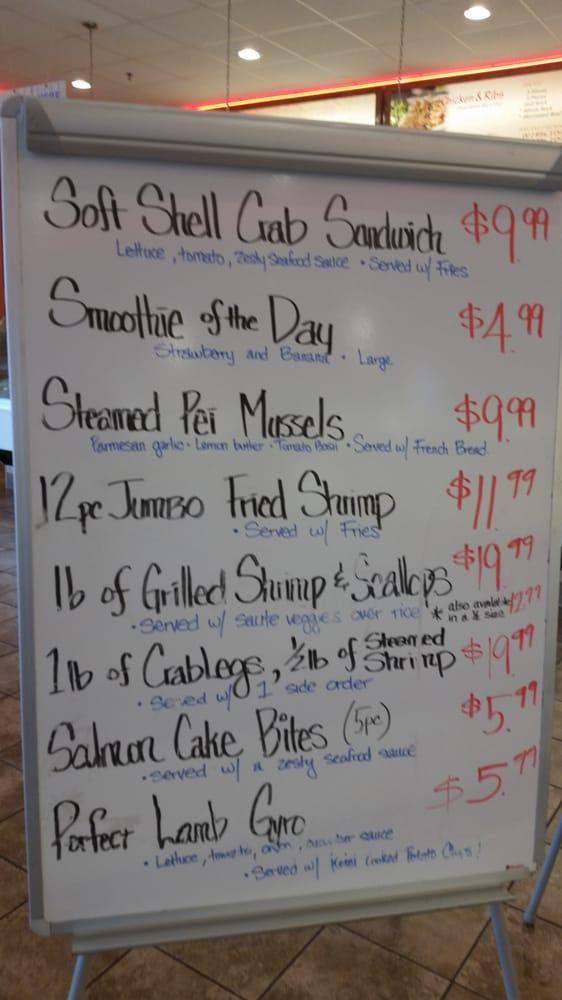 Chicken & Ribs
Soft Shell Crab Sandwich $9.99
Lettuce, tomato, zesty seafood sauce • Served w/ Fries
Smoothie of the Day $4.99
Strawberry and Banana • Large
Steamed Pei Mussels $9.99
Parmesan garlic • Lemon butter • Tomato Basil • Served w/ French Bread
12pc Jumbo Fried Shrimp $11.99
• Served w/ Fries
1lb of Grilled Shrimp & Scallops $19.99
• Served w/ saute veggies over rice! * also available in a ½ size * 12.99
1lb of Crablegs, ½lb of Steamed Shrimp $19.99
• Served w/ 1 side order
Salmon Cake Bites (5pc) $5.99
• served w/ a zesty seafood sauce
Perfect Lamb Gyro $5.99
• Lettuce, tomato, onion, cucumber sauce
• Served w/ Kettle Cooked Potato Chips!